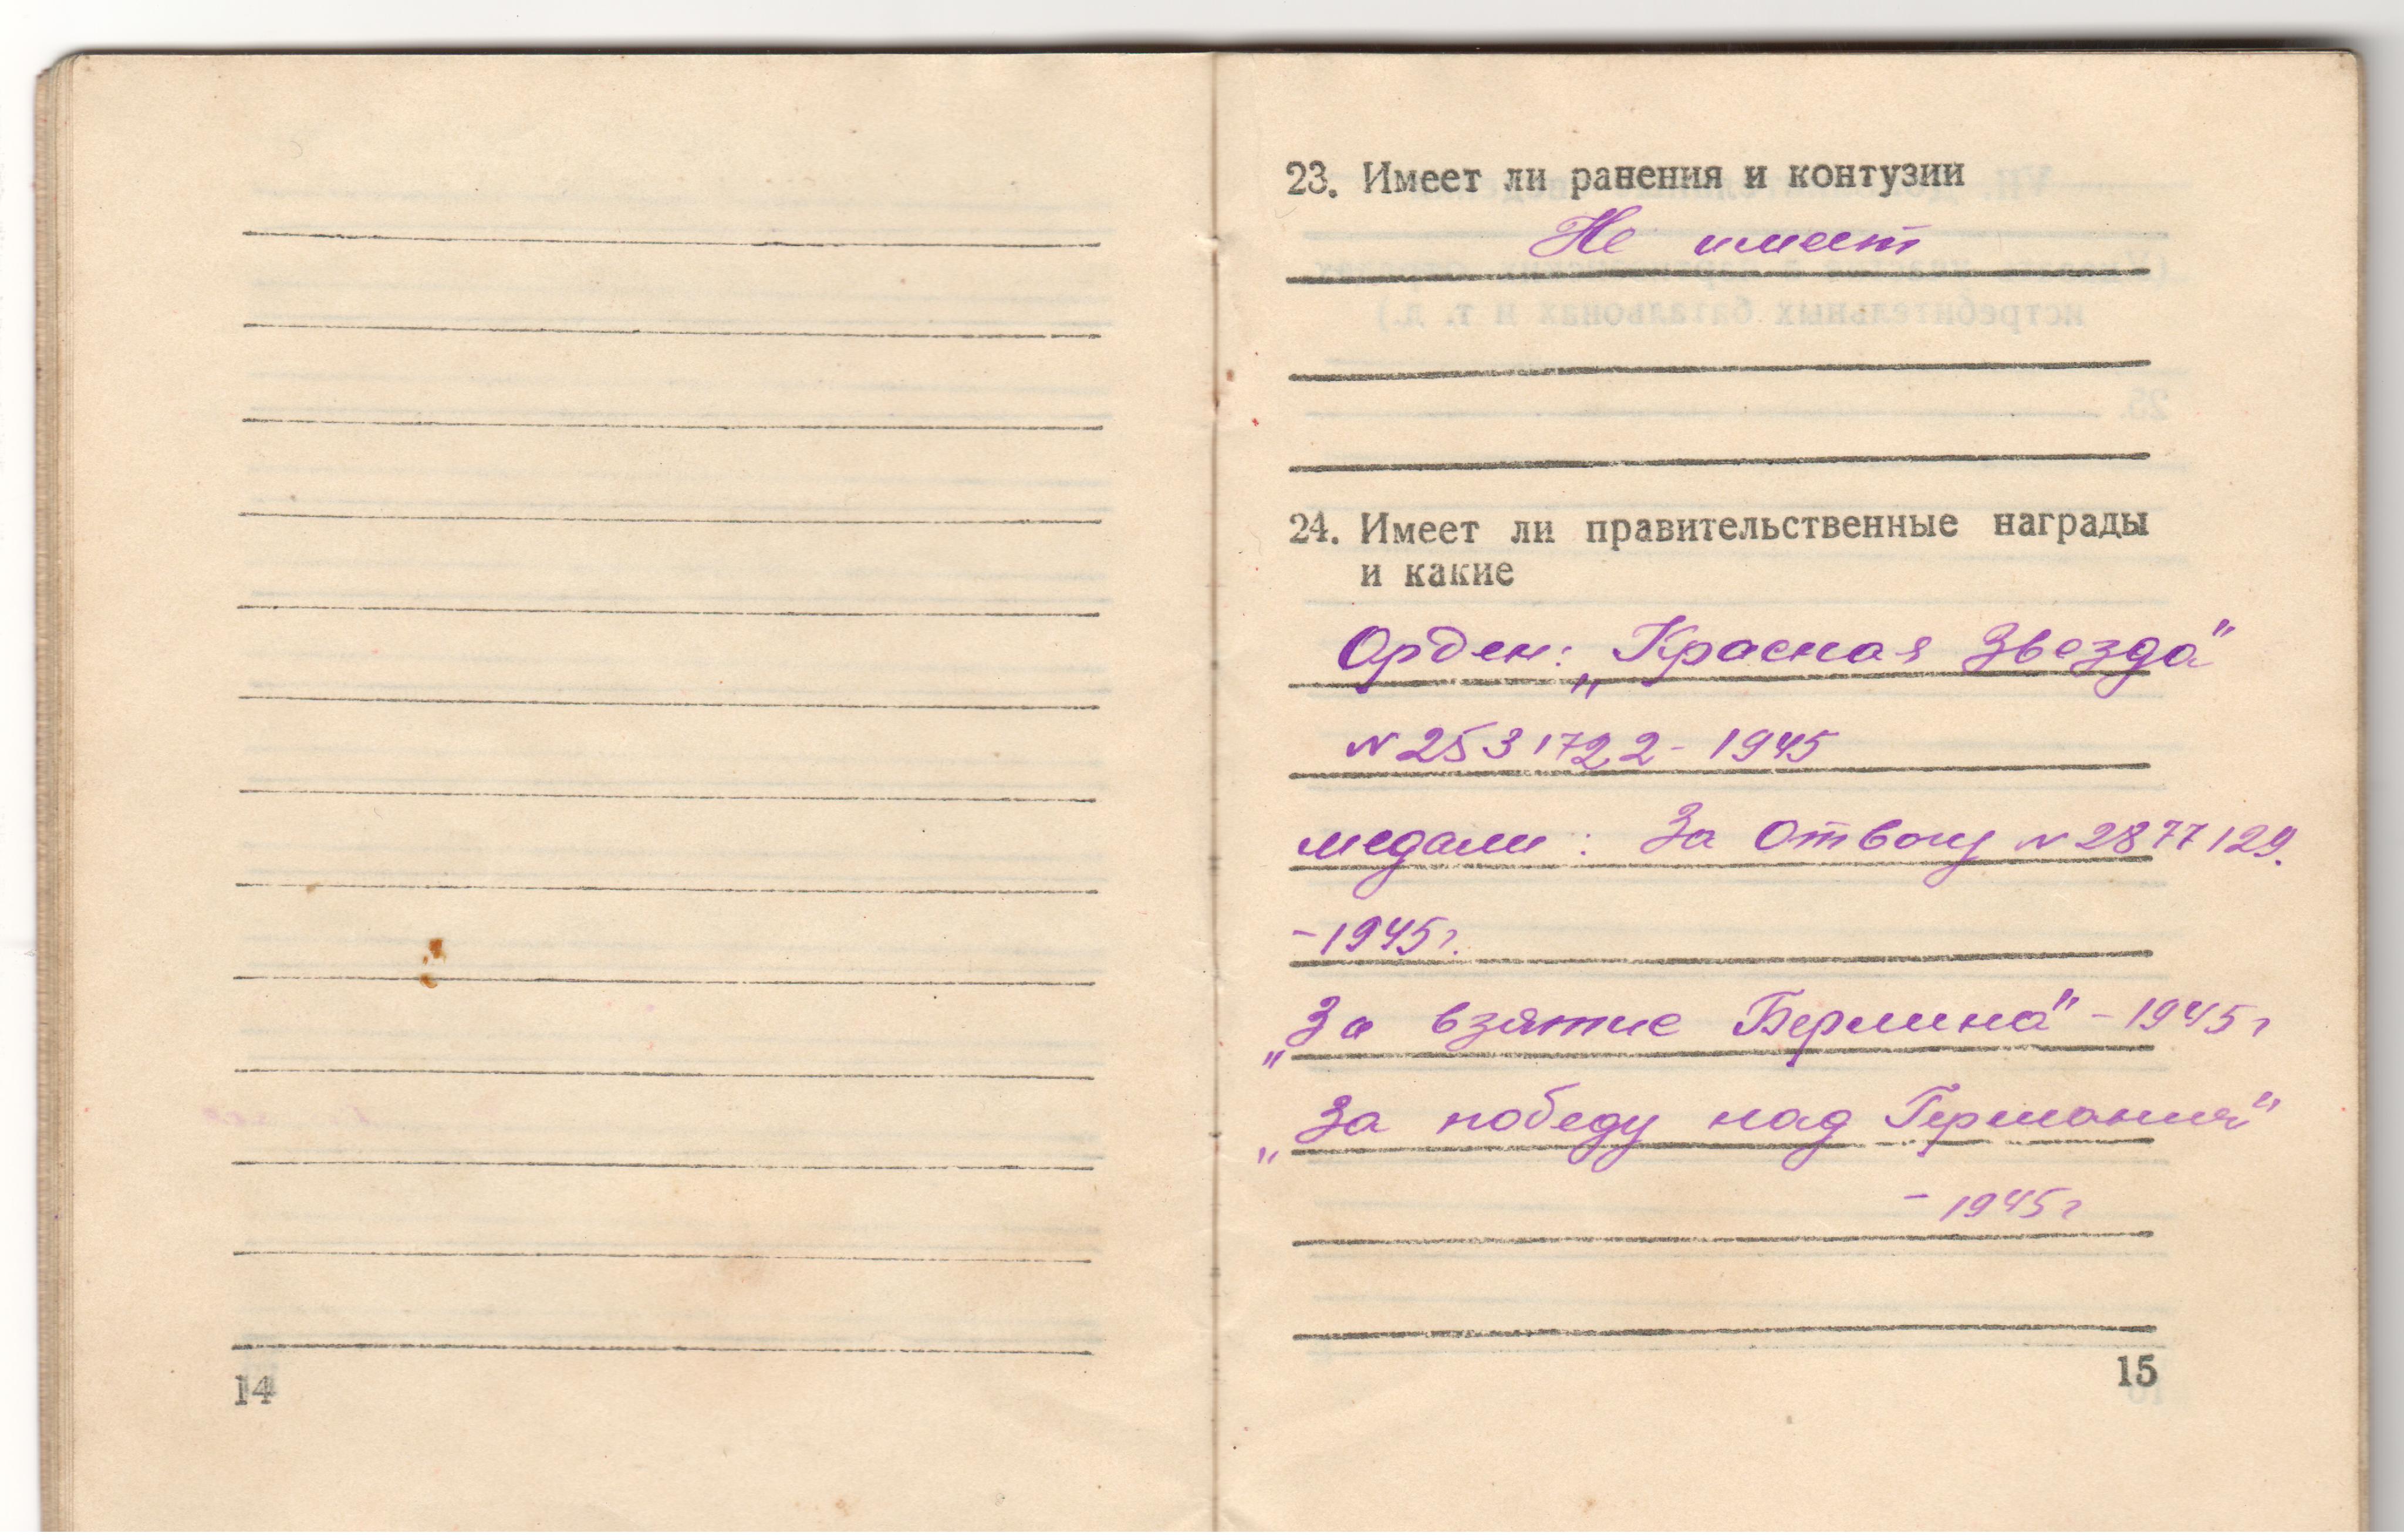 23. Имеет ли ранения и контузии
Не имеет
24. Имеет ли правительственные награды
и какие
Орден: „Красная Звезда"
N 2531722 - 1945
медали: За Отвагу N 2877129.
- 1945 г.
„За взятие Берлина" - 1945 г
„За победу над Германия"
- 1945 г
14
15